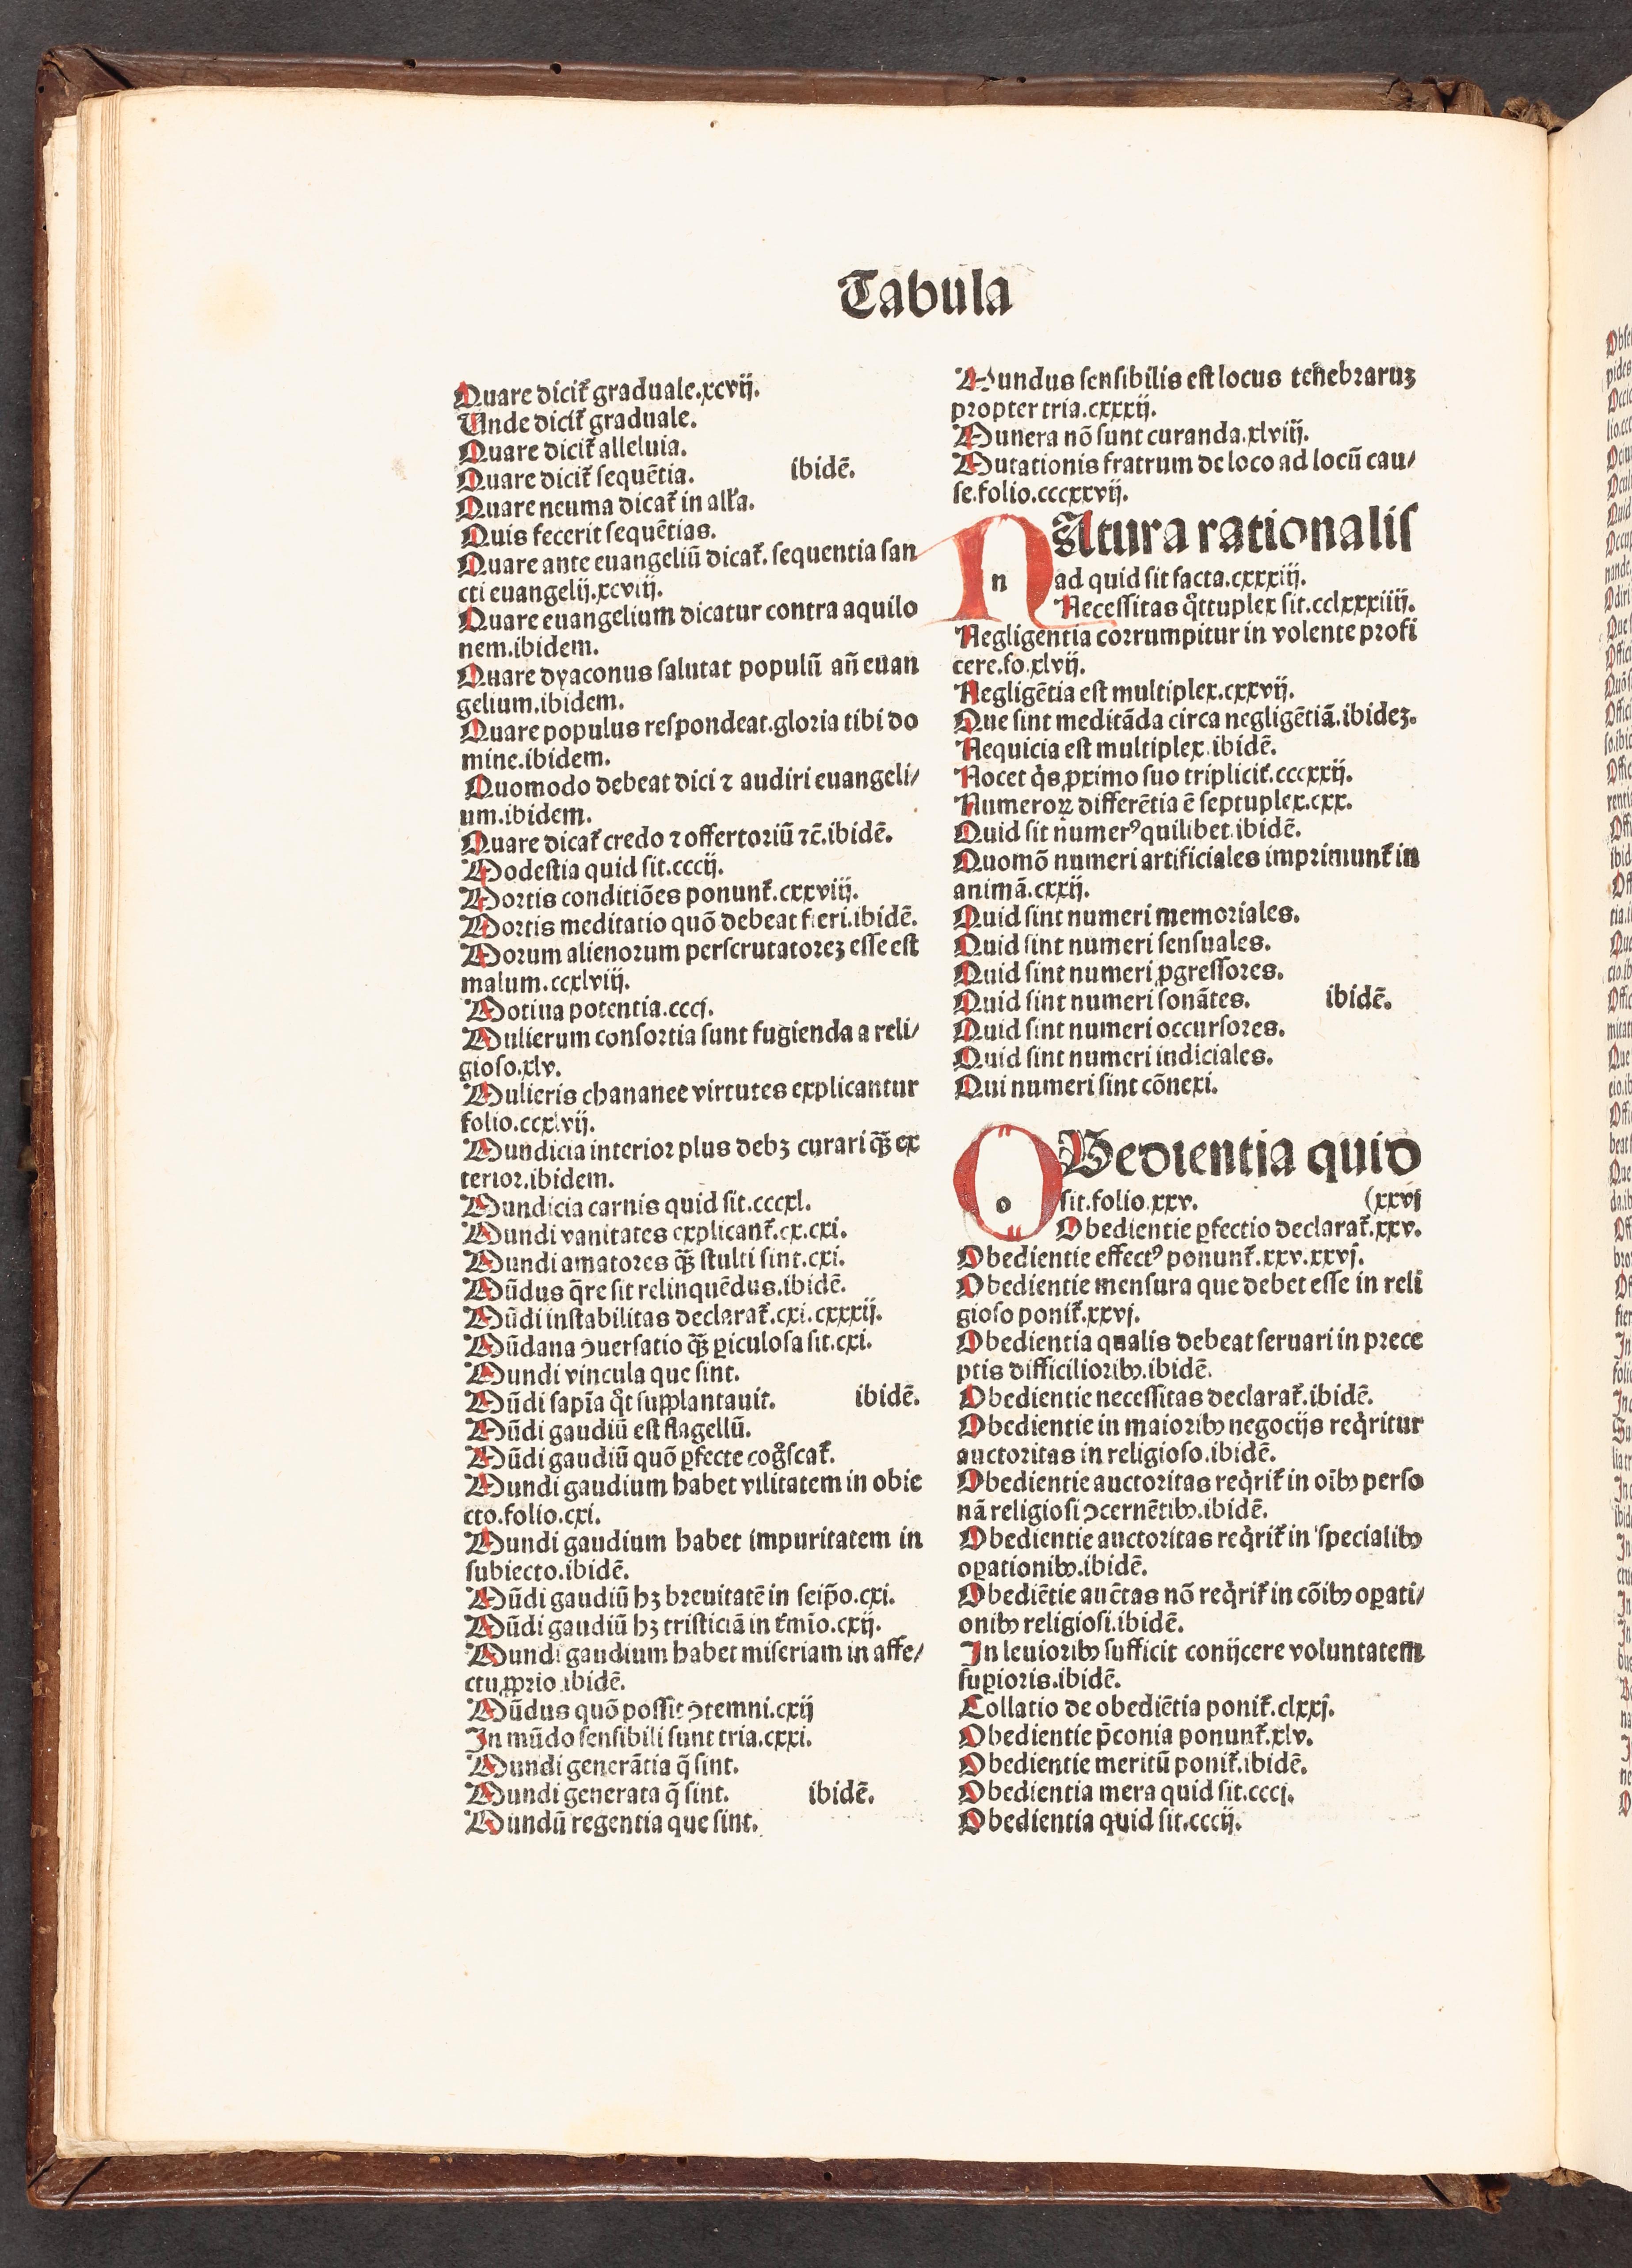 Tabula
Quare dicit̃ graduale.xcvij.
Unde dicit̃ graduale.
Quare dicit̃ alleluia.
Quare dicit̃ sequẽtia. ibidẽ.
Quare neuma dicat̃ in all'a.
Quis fecerit sequẽtias.
Quare ante euangeliũ dicat̃. sequentia san
cti euangelij.xcviij.
Quare euangelium dicatur contra aquilo
nem.ibidem.
Quare dyaconus salutat populũ añ euan
gelium.ibidem.
Quare populus respondeat.gloria tibi do
mine.ibidem.
Quomodo debeat dici ⁊ audiri euangeli/
um.ibidem.
Quare dicat̃ credo ⁊ offertoriũ ⁊c̃.ibidẽ.
Modestia quid sit.cccij.
Mortis conditiões ponunt̃.cxxviij.
Mortis meditatio quõ debeat fieri.ibidẽ.
Morum alienorum perscrutatoreȝ esse est
malum.ccxlviij.
Motiua potentia.cccj.
Mulierum consortia sunt fugienda a reli/
gioso.xlv.
Mulieris chananee virtutes explicantur
folio.ccxlvij.
Mundicia interior plus debȝ curari q̃ȝ ex
terior.ibidem.
Mundicia carnis quid sit.cccxl.
Mundi vanitates explicant̃.cx.cxi.
Mundi amatores q̃ȝ stulti sint.cxi.
Mũdus q̃re sit relinquẽdus.ibidẽ.
Mũdi instabilitas declarat̃.cxi.cxxxij.
Mũdana ꝯuersatio q̃ȝ ꝑiculosa sit.cxi.
Mundi vincula que sint.
Mũdi sapĩa q̃t supplantauit. ibidẽ.
Mũdi gaudiũ est flagellũ.
Mũdi gaudiũ quõ ꝑfecte cog̃scat̃.
Mundi gaudium habet vilitatem in obie
cto.folio.cxi.
Mundi gaudium habet impuritatem in
subiecto.ibidẽ.
Mũdi gaudiũ hȝ breuitatẽ in seip̃o.cxi.
Mũdi gaudiũ hȝ tristiciã in t̃mĩo.cxij.
Mundi gaudium habet miseriam in affe/
ctu ꝓprio.ibidẽ.
Mũdus quõ possit ꝯtemni.cxij
In mũdo sensibili sunt tria.cxxi.
Mundi generãtia q̃ sint.
Mundi generata q̃ sint. ibidẽ.
Mundũ regentia que sint.
Mundus sensibilis est locus tenebraruȝ
propter tria.cxxxij.
Munera nõ sunt curanda.xlviij.
Mutationis fratrum de loco ad locũ cau/
se.folio.cccxxvij.
n NAtura rationalis
ad quid sit facta.cxxxiij.
Necessitas q̃ttuplex sit.cclxxxiiij.
Negligentia corrumpitur in volente profi
cere.fo.xlvij.
Negligẽtia est multiplex.cxxvij.
Que sint meditãda circa negligẽtiã.ibideȝ.
Nequicia est multiplex.ibidẽ.
Nocet q̃s ꝓximo suo triplicit̃.cccxxij.
Numeroꝝ differẽtia ẽ septuplex.cxx.
Quid sit numerꝰ quilibet.ibidẽ.
Quomõ numeri artificiales imprimunt̃ in
animã.cxxij.
Quid sint numeri memoriales.
Quid sint numeri sensuales.
Quid sint numeri ꝓgressores.
Quid sint numeri sonãtes. ibidẽ.
Quid sint numeri occursores.
Quid sint numeri indiciales.
Qui numeri sint cõnexi.
o OBedientia quid
sit.folio.xxv. (xxvj
Obedientie ꝑfectio declarat̃.xxv.
Obedientie effectꝰ ponunt̃.xxv.xxvj.
Obedientie mensura que debet esse in reli
gioso ponit̃.xxvj.
Obedientia qualis debeat seruari in prece
ptis difficiliorib⁹.ibidẽ.
Obedientie necessitas declarat̃.ibidẽ.
Obedientie in maiorib⁹ negocijs req̃ritur
auctoritas in religioso.ibidẽ.
Obedientie auctoritas req̃rit̃ in oĩb⁹ perso
nã religiosi ꝯcernẽtib⁹.ibidẽ.
Obedientie auctoritas req̃rit̃ in specialib⁹
oꝑationib⁹.ibidẽ.
Obediẽtie auc̃tas nõ req̃rit̃ in cõib⁹ oꝑati/
onib⁹ religiosi.ibidẽ.
In leuiorib⁹ sufficit conijcere voluntatem
suꝑioris.ibidẽ.
Collatio de obediẽtia ponit̃.clxxj.
Obedientie p̃conia ponunt̃.xlv.
Obedientie meritũ ponit̃.ibidẽ.
Obedientia mera quid sit.cccj.
Obedientia quid sit.cccij.